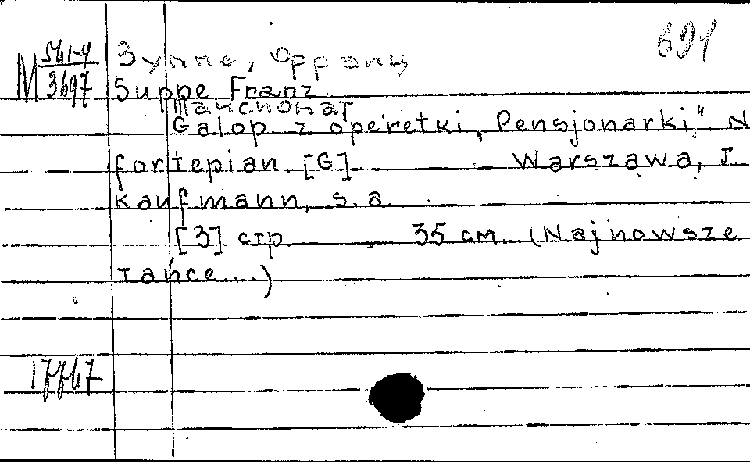 691
М 561-4
3697
Зуппе, Франц
Suppe Franz
Pancionat
Galop z operetki „Pensjonarki" N
fortepian [G] Warszawa, J.
Kaufmann, s.a.
[3] стр 35 см (Najnowsze
tańce...)